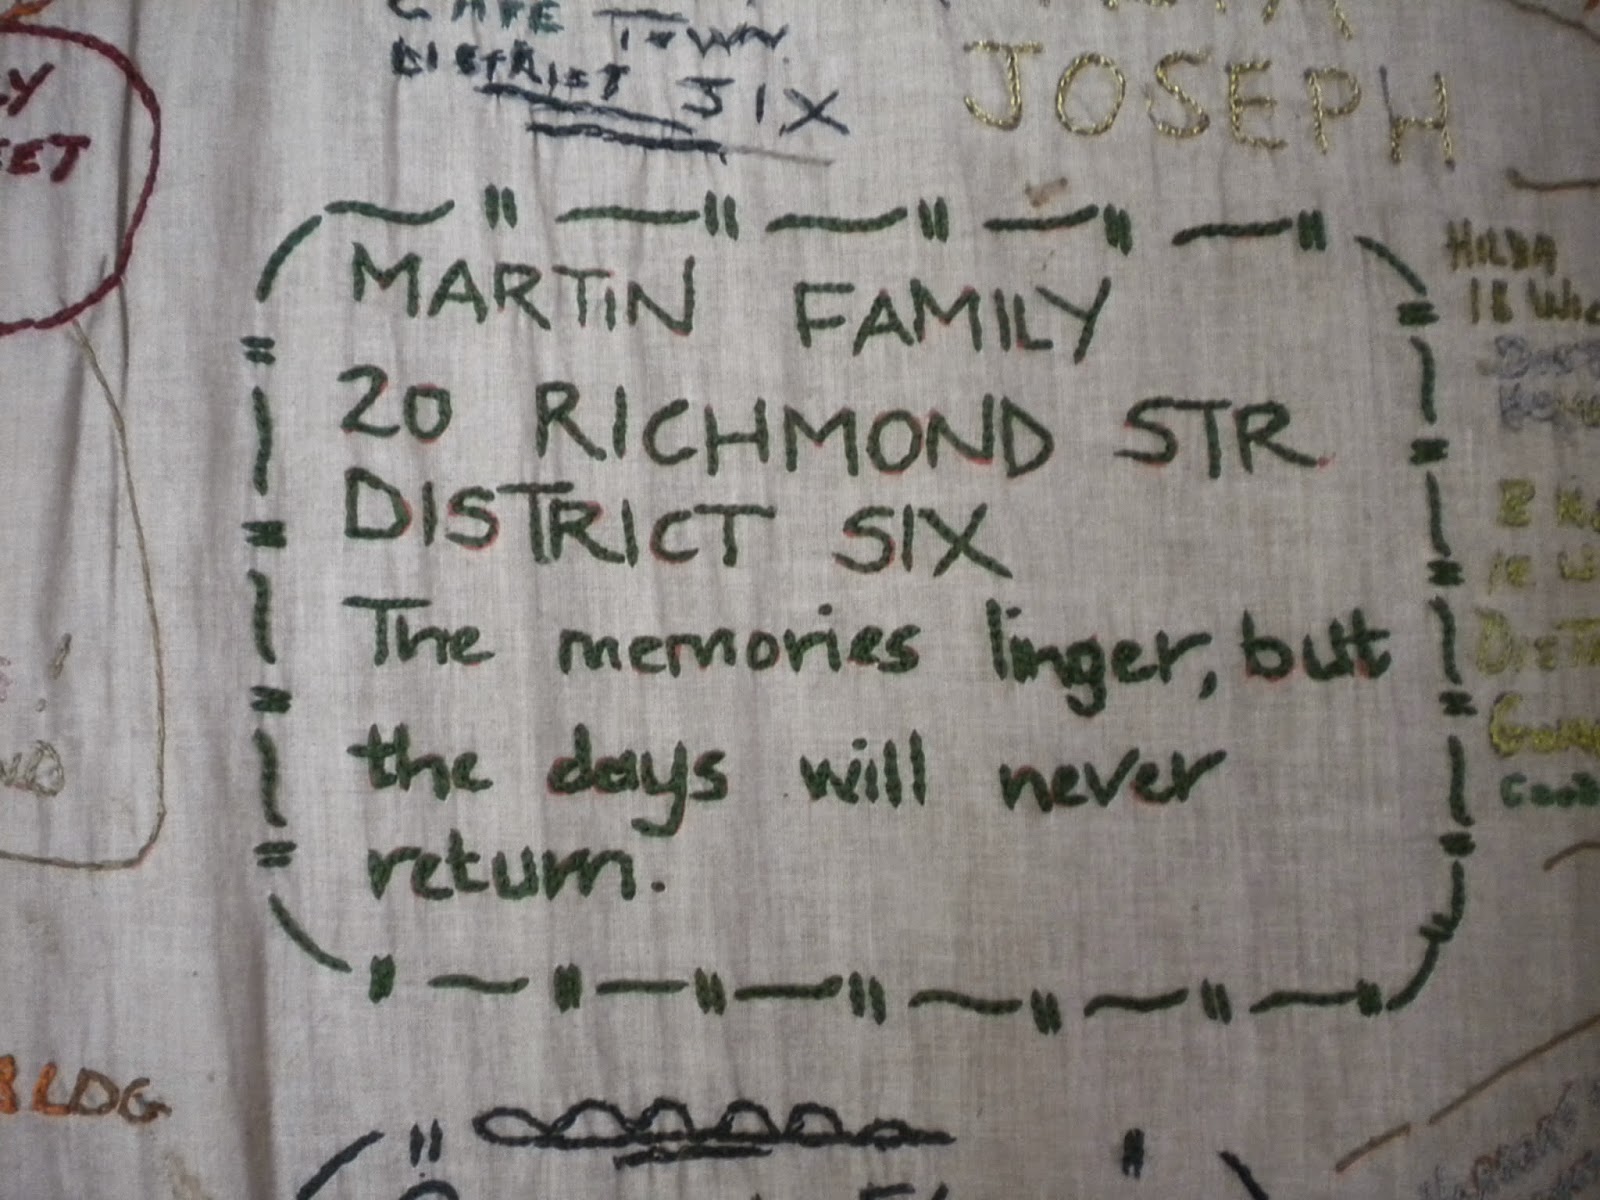 CAPE TOWN
DISTRICT SIX
JOSEPH
MARTIN FAMILY
20 RICHMOND STR
DISTRICT SIX
The memories linger, but
the days will never
return.
HILDA
BLDG